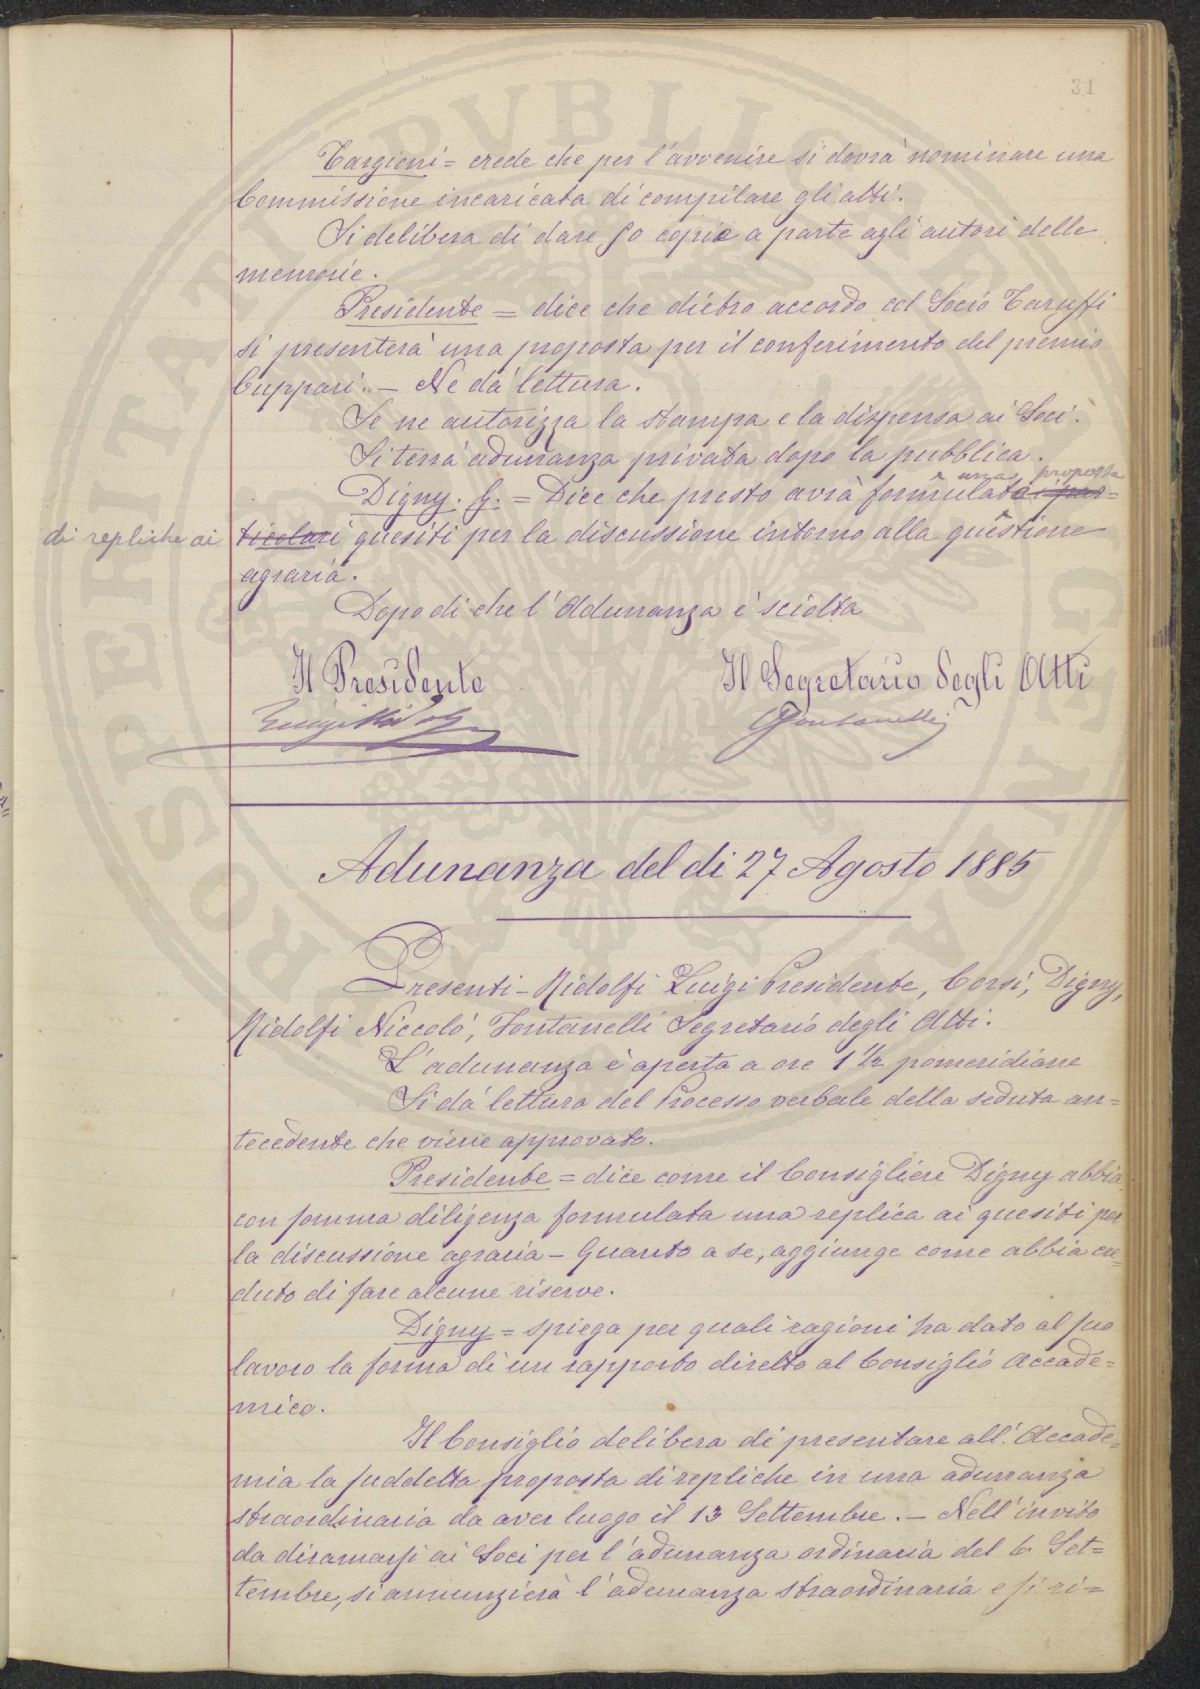 31
Targioni = crede che per l'avvenire si dovrà nominare una
Commissione incaricata di compilare gli atti.
Si delibera di dare 50 copie a parte agli autori delle
memorie.
Presidente = dice che dietro accordo col Socio Taruffi
si presenterà una proposta per il conferimento del premio
Cuppari. — Ne dà lettura.
Se ne autorizza la stampa e la dispensa ai Soci.
Si terrà adunanza privata dopo la pubblica.
una proposta
Digny. G. = Dice che presto avrà formulato i par=
di repliche ai
ticolari quesiti per la discussione intorno alla questione
agraria.
Dopo di che l'Adunanza è sciolta
Il Presidente
Il Segretario degli Atti
Luigi Ridolfi
Fontanelli
Adunanza del dì 27 Agosto 1885
Presenti - Ridolfi Luigi Presidente, Corsi, Digny,
Ridolfi Niccolò, Fontanelli Segretario degli Atti.
L'adunanza è aperta a ore 1 1/2 pomeridiane
Si dà lettura del Processo verbale della seduta an=
tecedente che viene approvato.
Presidente = dice come il Consigliere Digny abbia
con somma diligenza formulata una replica ai quesiti per
la discussione agraria - Quanto a se, aggiunge come abbia cre=
duto di fare alcune riserve.
Digny = spiega per quali ragioni ha dato al suo
lavoro la forma di un rapporto diretto al Consiglio Accade=
mico.
Il Consiglio delibera di presentare all'Accade=
mia la suddetta proposta di repliche in una adunanza
straordinaria da aver luogo il 13 Settembre. — Nell'invito
da diramarsi ai Soci per l'adunanza ordinaria del 6 Set=
tembre, si annunzierà l'adunanza straordinaria e si ri=
PROSPERITATI PUBLICAE AUGENDAE